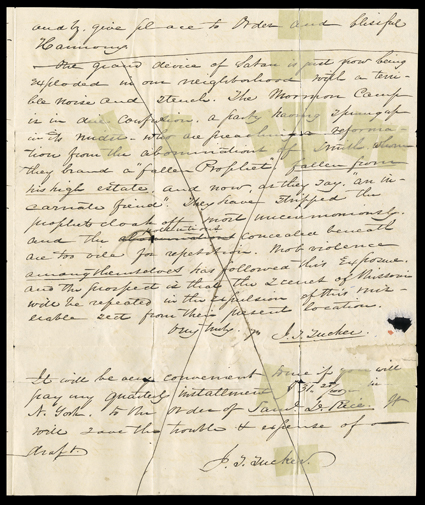 and give place to Order and blissful
Harmony
The grand device of Satan is just now being
exploded in our neighborhood with a terri-
ble noise and stench. The Mormon Camp
is in dire confusion. a party having sprung up
in its midst who are preaching a reforma-
tion from the abominations of Smith whom
they brand a fallen Prophet" fallen from
his high estate, and now, as they say, "an in-
carnate fiend". They have stripped the
prophets cloak off most uncommonly.
and the concealed beneath
are too vile for repetition. Mob violence
among themselves has followed this Exposure.
and the prospect is that the Scenes of Missouri
will be repeated in the expulsion of this mis-
erable sect from their present location.
Very truly yrs J. T. Tucker.
It will be convenient to me if you will
pay my quarterly installment in
N. York. to the order of Saml. D. Rice. It
will save the trouble & expense of a
draft.
J. T. Tucker.